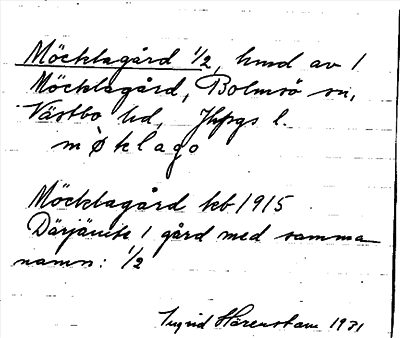 Möcklagård 1/2, hmd av 1
Möcklagård, Bolmsö sn,
Västbo hd, Jkpgs l.
møklago
Möcklagård kb 1915
Därjämte 1 gård med samma
namn: 1/2
Ingrid Härenstam 1931